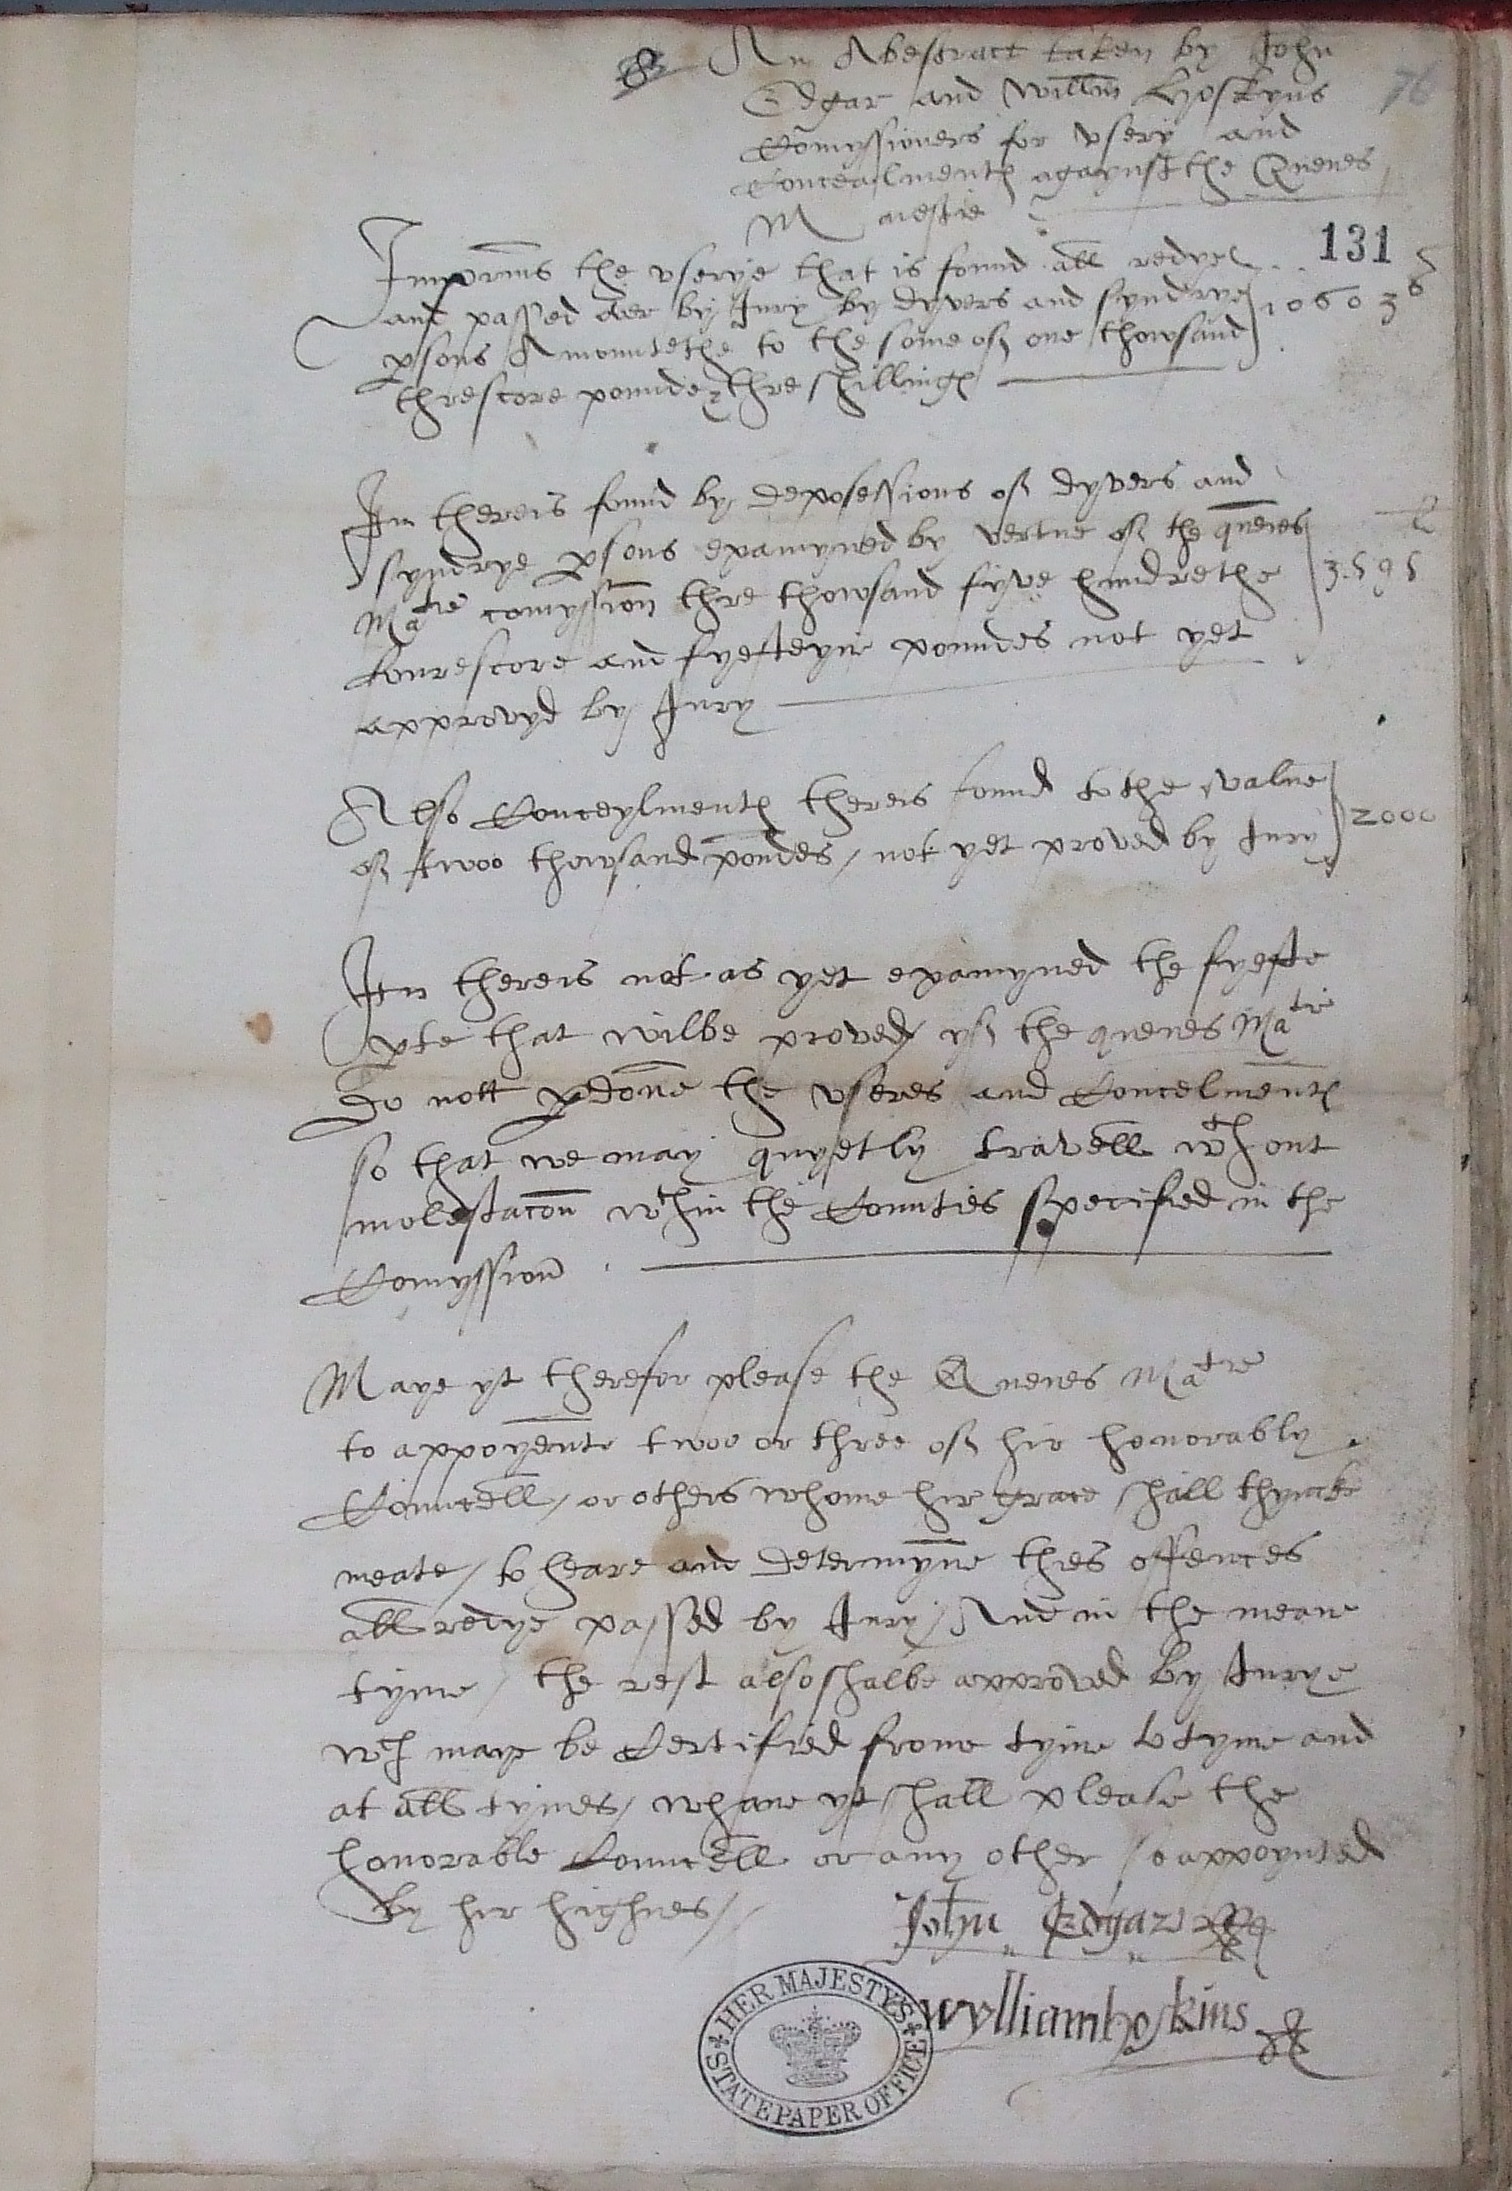 An Abestract taken by John
Edgar and Willm Hoskyns 76
Comyssioners for vsery and
Concealmentes agaynst the Quenes
Maiestie
131
Imprimis the vserye that is found all redye
and passed over by Jury by dyvers and syndrye 1060 3s
psons Amountethe to the some of one thowsand
threscore pounde & thre shillinges
Itm there is found by deposessions of dyvers and
syndrye psons examyned by vertue of the quenes li
Matie comyssion thre thowsand fyve hundrethe 3595
fourescore and fyefteyne poundes not yet
approvyd by Jury
Also Conceylmentes there is found to the value
of twoo thowsand pondes / not yet proved by Jury 2000
Itm there is not as yet examyned the fyefte
pte that wilbe proved / yf the quenes Matie
Do nott pdone the vseres and Concelmentes
so that we may quyetly travell wth out
molestacon wth in the Counties specified in the
Comyssion
Maye yt therefor please the Quenes Matie
to appoyente twoo or three of hir honorably
Councell / or others whome hir grace shall thyncke
meate / to heare and determyne thes offences
all redye passed by Jury / And in the meane
tyme / the rest also shalbe approved by Jurye
wch maye be Certified frome tyme to tyme and
at all tymes / whane yt shall please the
honorable Councell or any other so appoynted
By hir highnes //
John Edgar
wylliam hoskins
HER MAJESTY'S STATE PAPER OFFICE